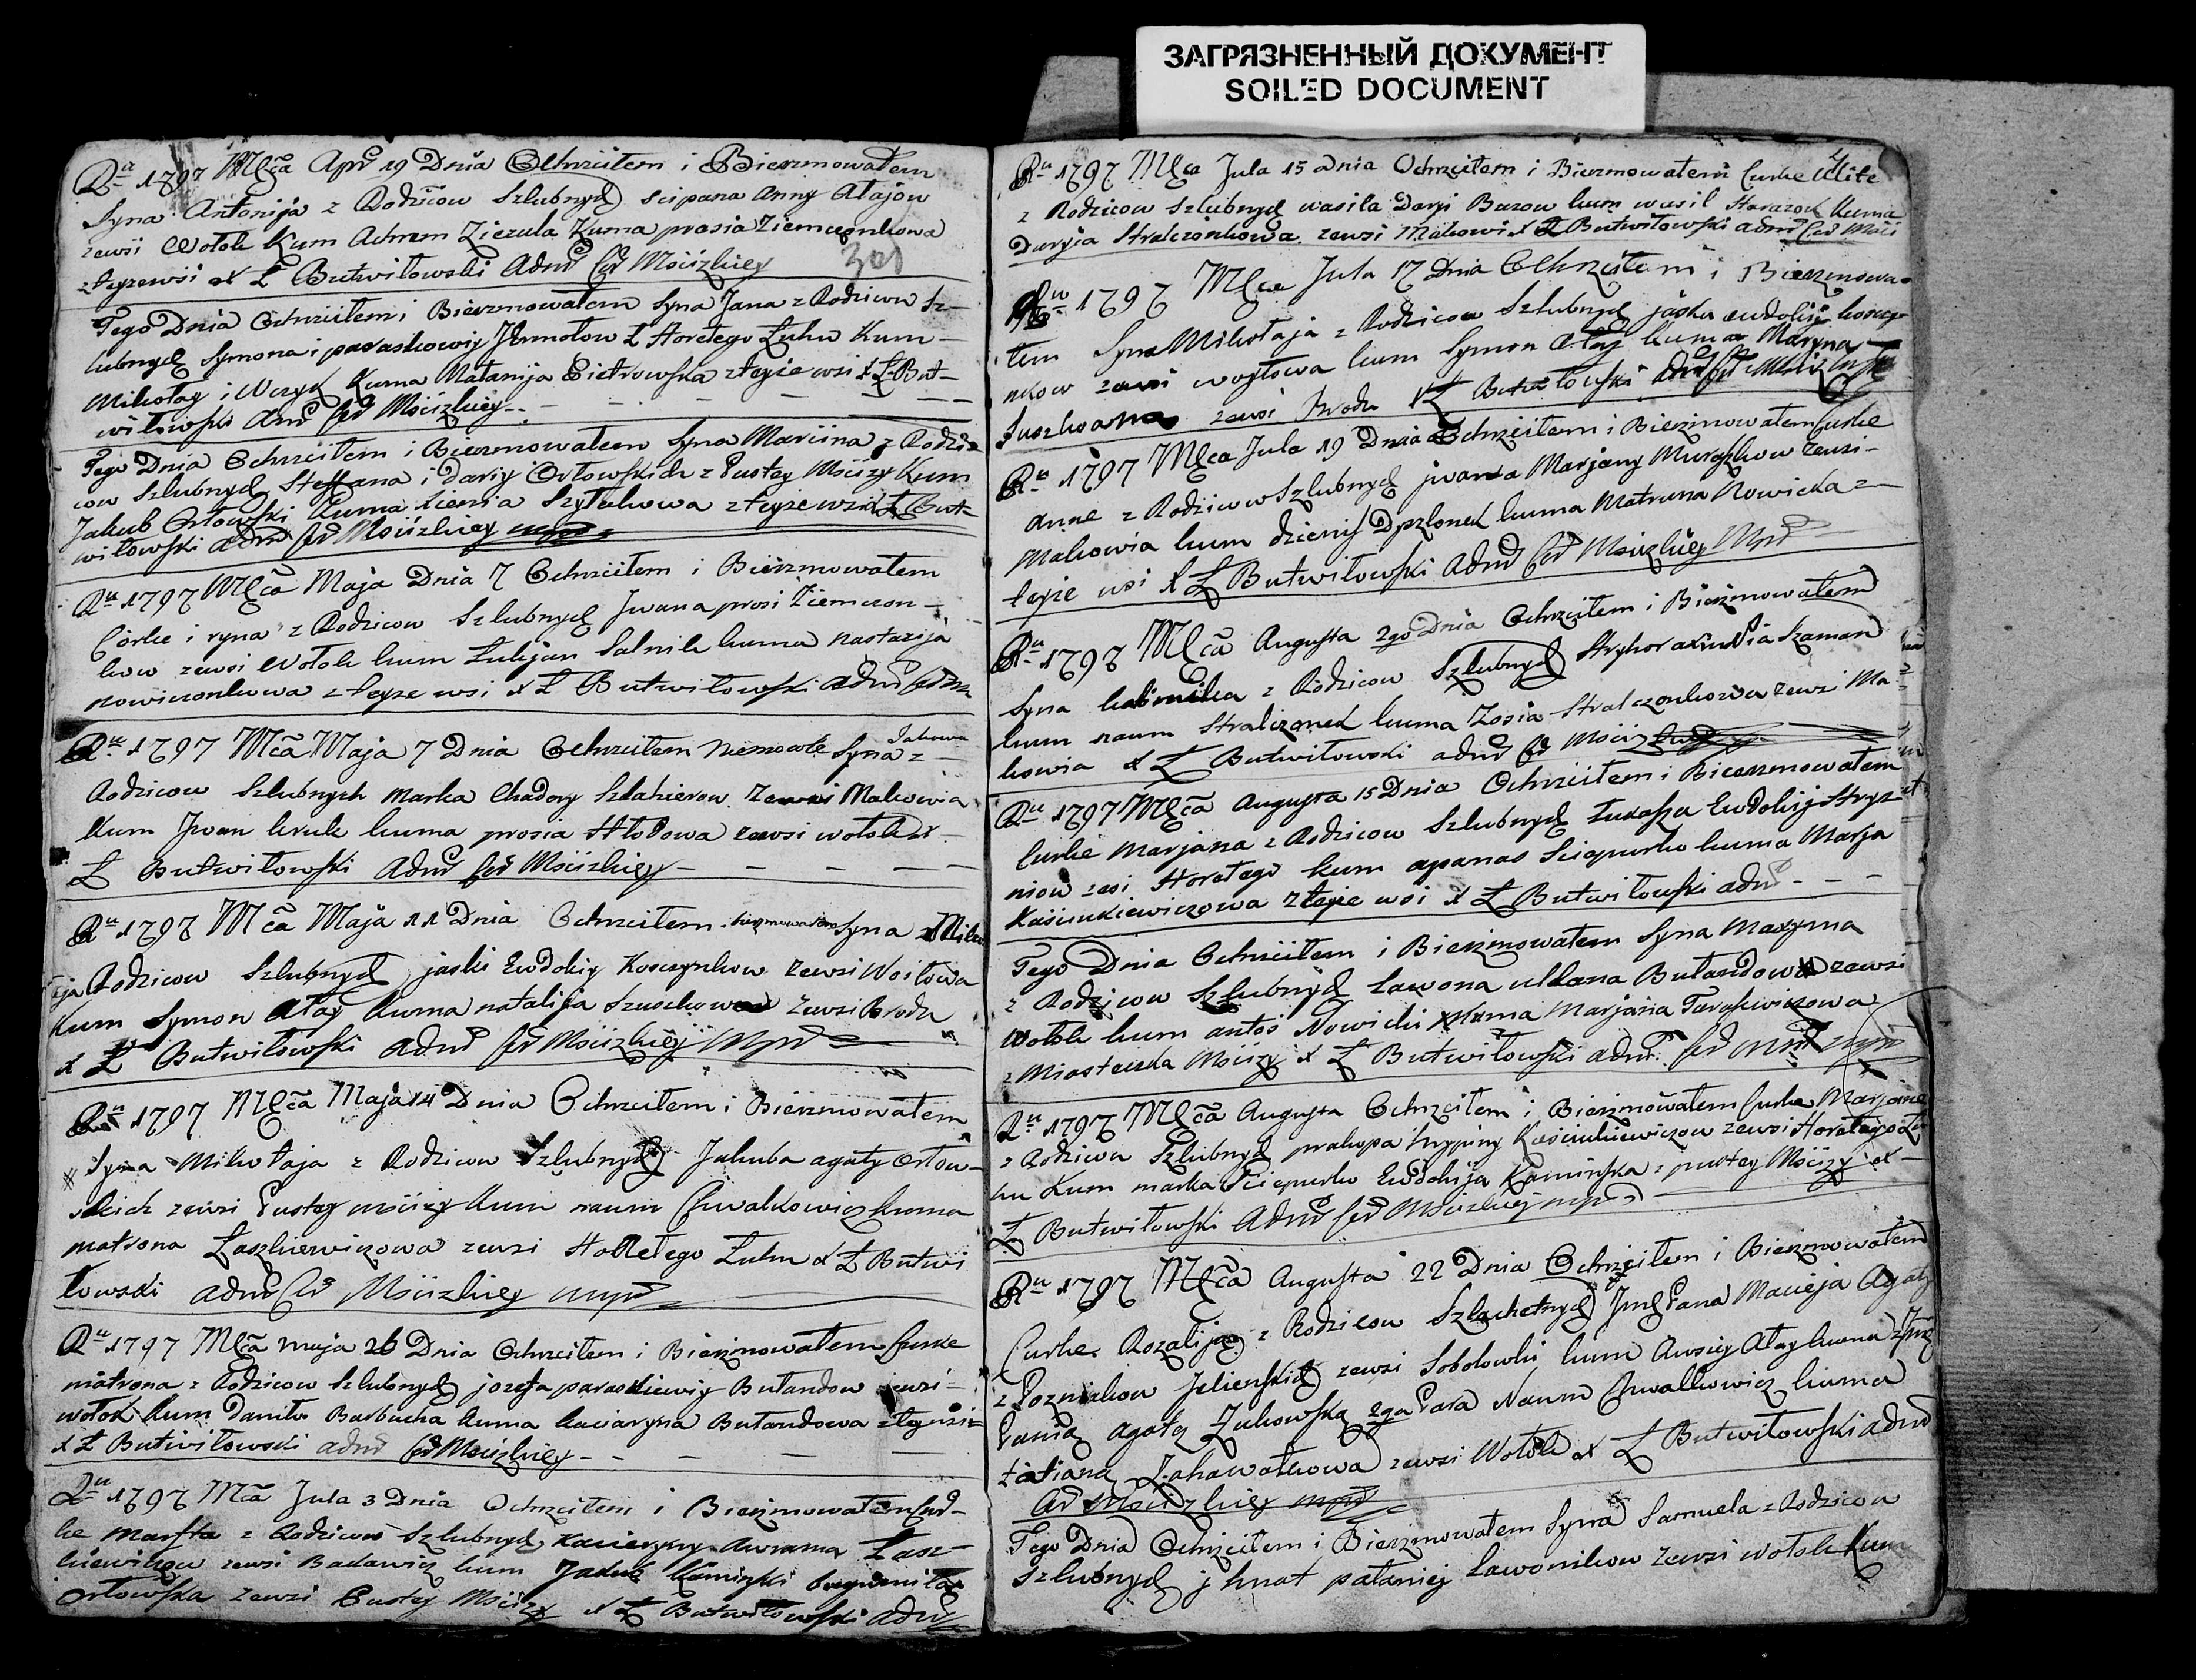 ЗАГРЯЗНЕННЫЙ ДОКУМЕНТ
SOILED DOCUMENT
Ru 1797 Mca Apr 19 Dnia Ochrzciłem i Bierzmowałem
Syna Antonija z Rodzicow Szlubnych scipana Anny Ałajow
zewsi Wołok Kum Achrem Ziezula Kuma prosia Ziemczonkowa
z teyzewsi x Ł Butwiłowski Adm Cer Mścizkiey
300
Tego Dnia Ochrzciłem i Bierzmowałem Syna Jana z Rodzicow Sz-
lubnych Symona i paraskowiy Jermołow z Horełego Łuhu Kum
Mikołay Kuma Natanija Pietrowska z teyze wsi x Ł But-
wiłowski Adm Cer Mścizkiey
Tego Dnia Ochrzciłem i Bierzmowałem Syna Marcina z Rodzi-
cow Szlubnych Steffana i Dariy Orłowskich z Pustey Mścizy Kum
Jakub Orłowski Kuma xienia Szyłakowa z teyze wsi x Ł But-
wiłowski adm Cer Mścizkiey mpr
Ru 1797 Mca Maja Dnia 7 Ochrzciłem i Bierzmowałem
Corke i ryna z Rodzicow Szlubnych Jwana prosi Ziemczon-
kow zewsi Wołok kum Łukjan Salnik kuma nastazija
nowiczonkowa z teyze wsi x Ł Butwiłowski adm Cer
Ru 1797 Mca Maja 7 Dnia Ochrzciłem Niemowle Syna z
Rodzicow Szlubnych Marka Chadory Szlahierow Zewsi Makowia
Kum Jwan kruk kuma prosia Hłodowa zewsi wołok x
Ł Butwiłowski Adm Cer Mścizkiey
Ru 1797 Mca Maja 11 Dnia Ochrzciłem bierzmowałem Syna Miko
łja Rodzicow Szlubnych jaski Ewdokiy Koszynkow zewsi Woiłowa
Kum Symon Ałay Kuma natalija Szuszkowa zewsi Brodu
x Ł Butwiłowski adm Cer Mścizkiey Mpr
Ru 1797 Mca Maja 14 Dnia Ochrzciłem i Bierzmowałem
Syna Mikołaja z Rodzicow Szlubnych Jakuba agaty Orłow-
skich zewsi Pustey mścizy Kum naum Chwalkowicz kuma
matrona Łaszkiewiczowa zewsi Horełego Łuhu x Ł Butwi
łowski adm Cer Mścizkiey mpr
Ru 1797 Mca maja 26 Dnia Ochrzciłem i Bierzmowałem Curke
matrona z Rodzicow Szlubnych jozefa paraskiewiy Butandow zewsi
wołok kum Daniło Barbucha kuma kaciaryna Butandowa z teyzwsi
x Ł Butwiłowski adm Cer Mścizkiey
Ru 1797 Mca Jula 3 Dnia Ochrzciłem i Bierzmowałem Cur-
ke marfta z Rodzicow Szlubnych Kacieryny Awrama Łasz-
kiewiczow zewsi Badawicz kum Jakub Kaminski
Orłowska zewsi Pustey Mścizy x Ł Butwiłowski adm
Ru 1797 Mca Jula 15 Dnia Ochrzciłem i Bierzmowałem Curke Ulite
z Rodzicow Szlubnych wasila Daryi Buzow kum wasil Kuma
Daryja Stralczonkowa zewsi Makowi x Ł Butwiłowski adm Cer Mści
Ru 1797 Mca Jula 17 Dnia Ochrzciłem i Bierzmowa-
łem Syna Mikołaja z Rodzicow Szlubnych jaska ewdokiy koszy-
nkow zewsi woyłowa kum Symon Ałay Kuma Maryna
Suszkowna zewsi Brodu x Ł Butwiłowski adm Cer Mścizkiey
Ru 1797 Mca Jula 19 Dnia Ochrzciłem i Bierzmowałem Curke
anne z Rodzicow Szlubnych jwana Marjany Muraszkow zewsi
Makowia kum dzienis kuma Matruna Nowicka z
teyze wsi x Ł Butwiłowski adm Cer Mścizkiey Mpr
Ru 1797 Mca Augusta 2go Dnia Ochrzciłem i Bierzmowałem
Syna z Rodzicow Szlubnych Szaman
kum naum Stralczonek kuma Zosia Stralczonkowa zewsi Ma-
kowia x Ł Butwiłowski adm Cer Mścizkiey
Ru 1797 Mca Augusta 15 Dnia Ochrzciłem i Bierzmowałem
Curke Marjana z Rodzicow Szlubnych Łukasza Ewdokiy Hrysz-
niow zesi Horełego kum apanas Sciepurko kuma Marja
Kaściukiewiczowa z teyze wsi x Ł Butwiłowski adm
Tego Dnia Ochrzciłem i Bierzmowałem Syna Maxyma
z Rodzicow Szlubnych Lawona ullana Butandow zewsi
Wołok kum antoś Nowicki Kuma Marjana Tarasiewiczowa
z Miasteczka Mścizy x Ł Butwiłowski adm Cer mpr
Ru 1797 Mca Augusta Ochrzciłem i Bierzmowałem Curke Marjane
z Rodzicow Szlubnych prakopa hrypiny Kaściukiewiczow zewsi Horełego Łu
hu Kum marka Sciepurko Ewdokija Kaminska z pustey Mścizy x
Ł Butwiłowski Adm Cer Mścizkiey mpr
Ru 1797 Mca Augusta 22 Dnia Ochrzciłem i Bierzmowałem
Curke Rozalije z Rodzicow Szlachetnych Jmć Pana Macieja Agaty
z Pozniakow Jelienskich zewsi Sobolowki kum Awsiey Ałay kuma z Jmć
Panią agatą Zukowską 2ga Para Naum Chwalkowicz kuma
tatiana Zahawałkowa zewsi Wołok x Ł Butwiłowski adm
Cer Mścizkiey mpr
Tego Dnia Ochrzciłem i Bierzmowałem Syna Samuela z Rodzicow
Szlubnych jhnat pałaniey Lawonikow zewsi wołok Kum